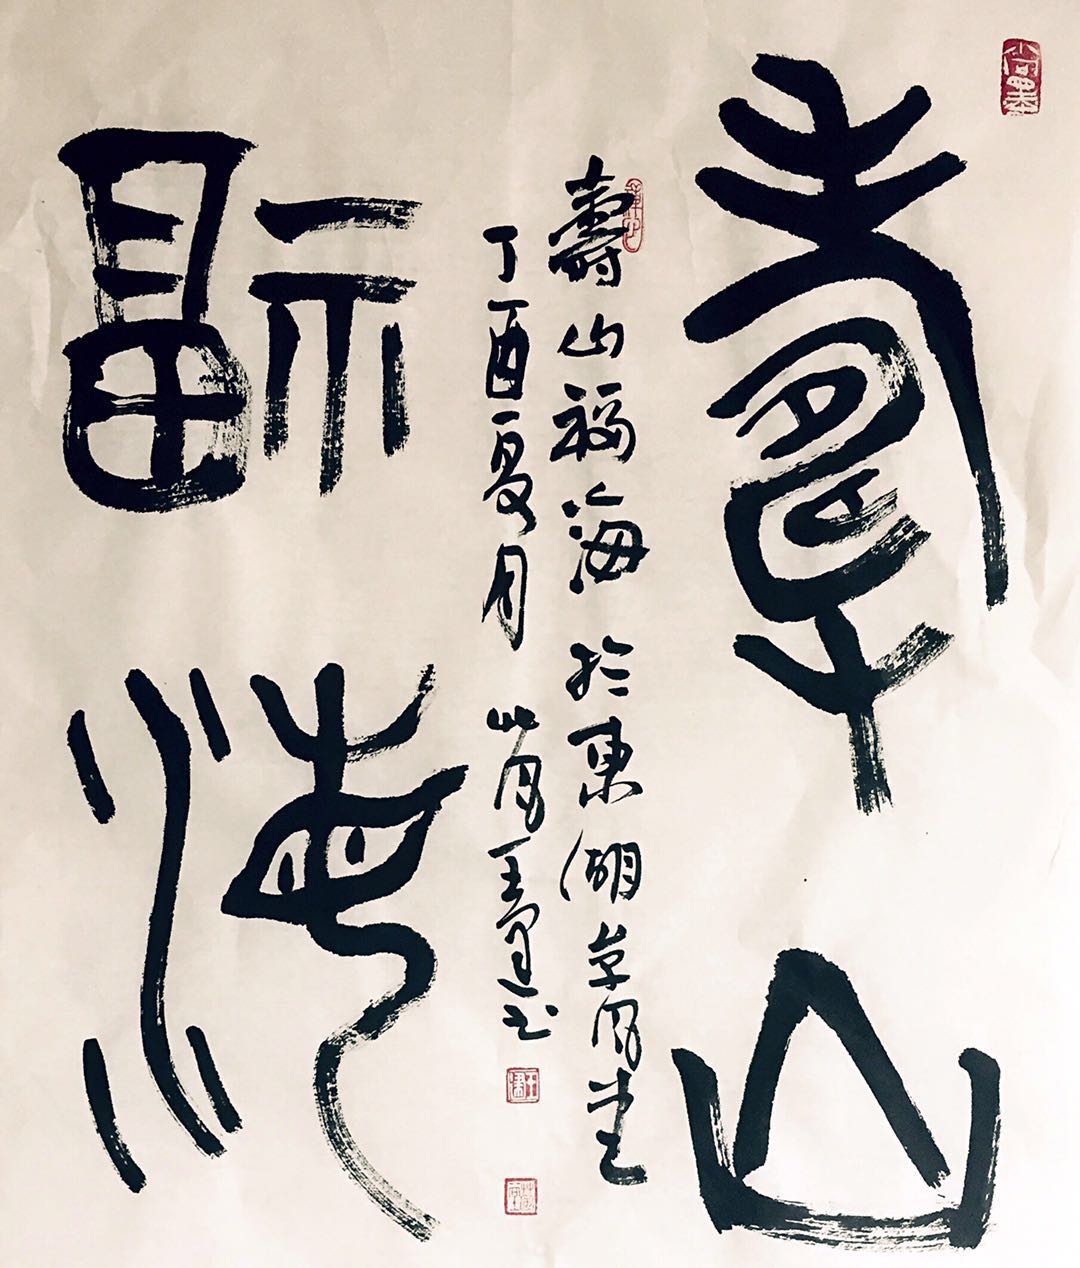 壽山
福海
壽山福海於東湖草月堂
丁酉夏月